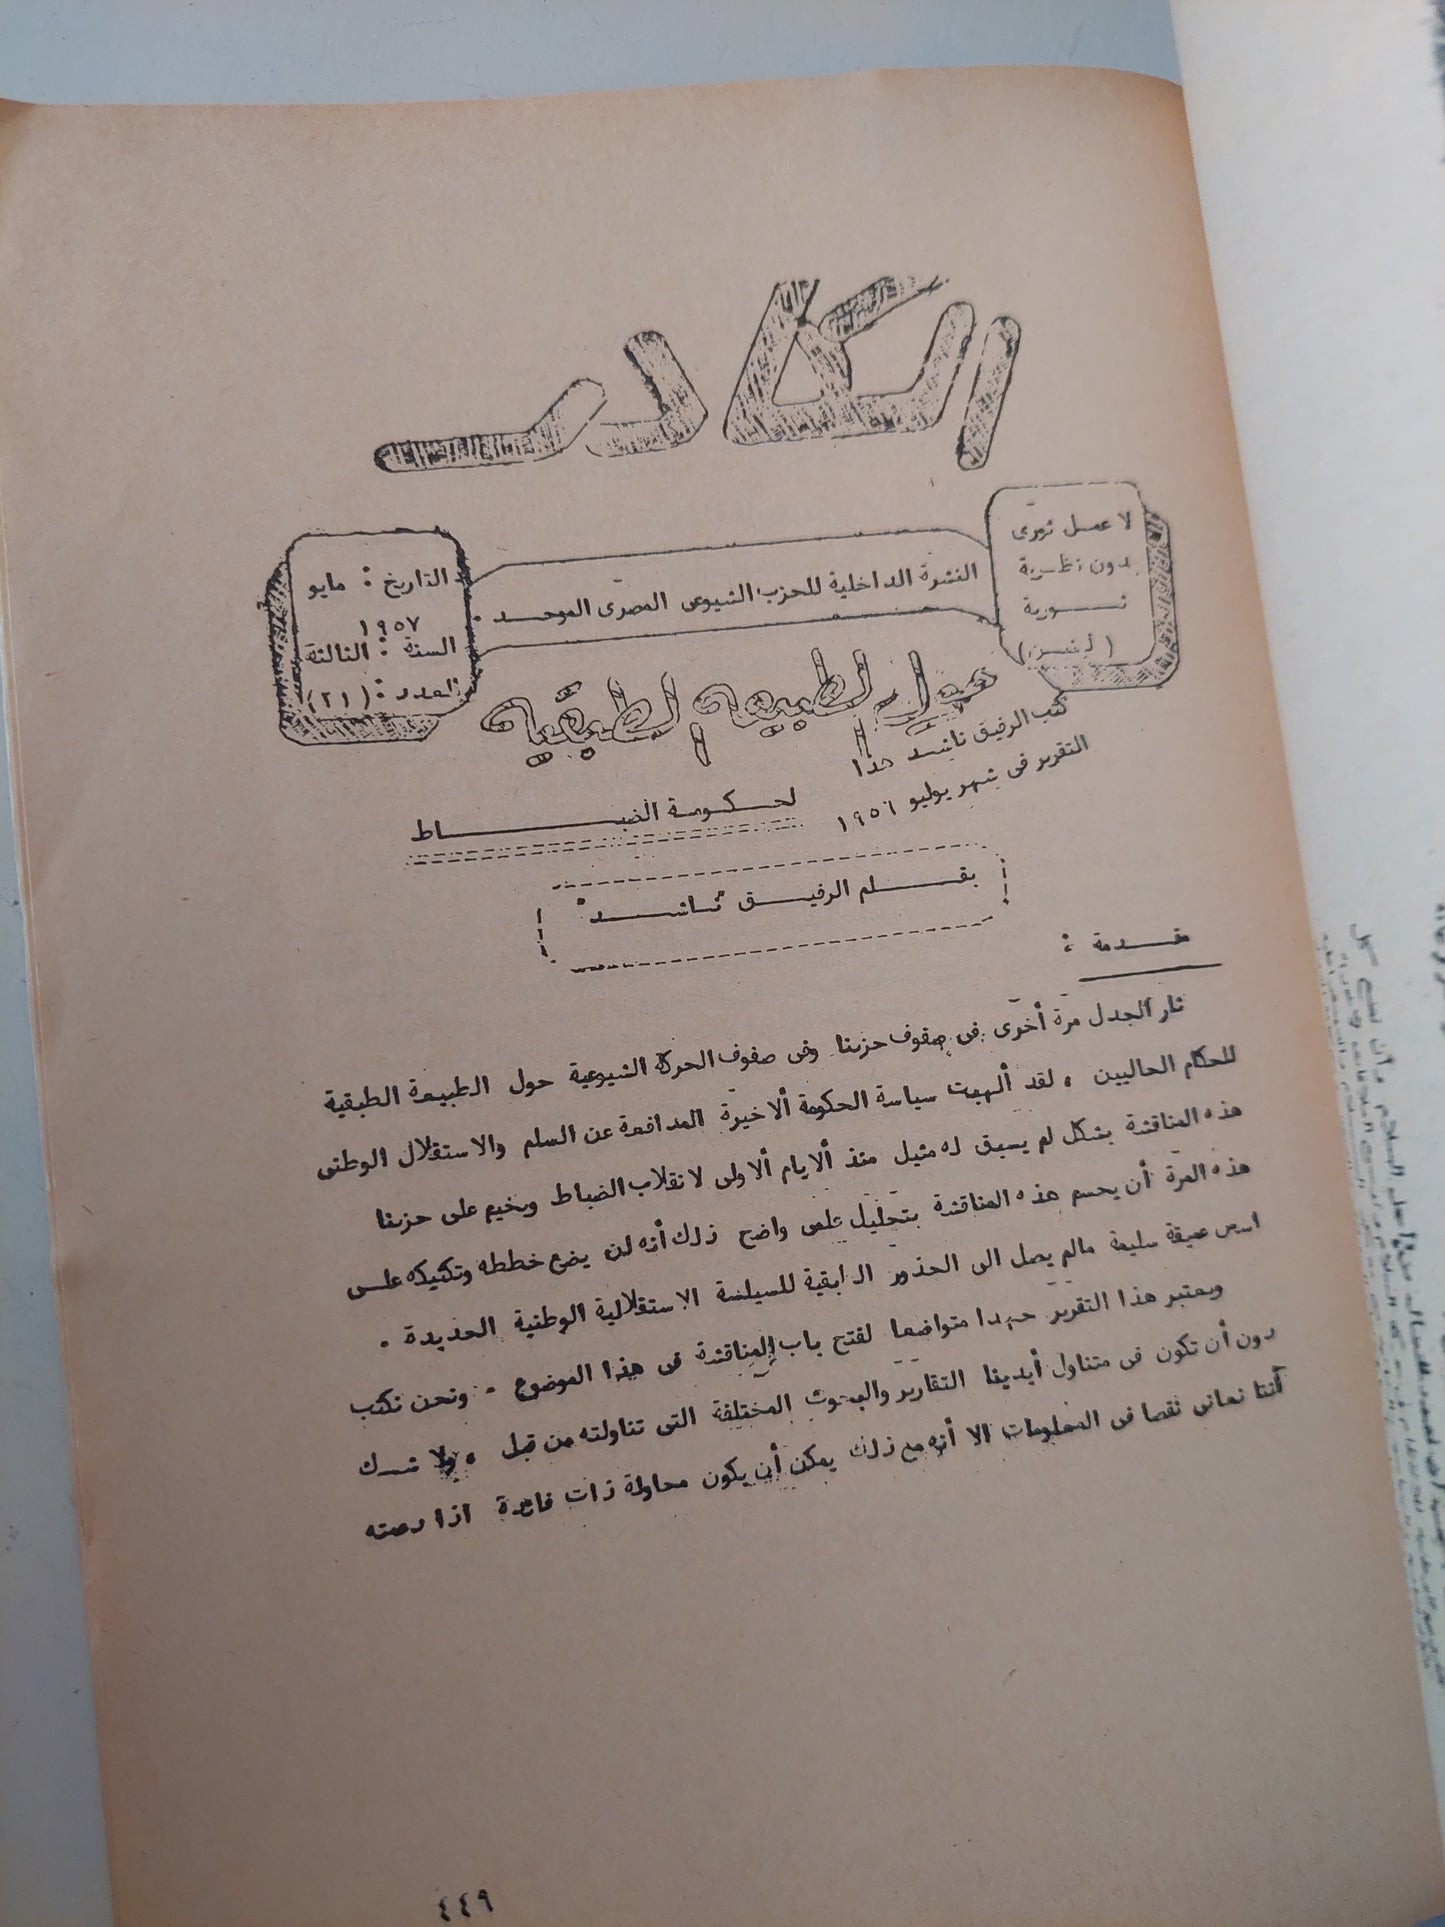 الكادر
لا عمل ثورى
بدون نظرية
ثــورية
(لينين)
النشرة الداخلية للحزب الشيوعى المصرى الموحد .
التاريخ : مايو
١٩٥٧
السنة : الثالثة
العدد : (٢١)
حول الطبيعة الطبقية
لحكومة الضباط
كتب الرفيق ناشد هذا
التقرير فى شهر يوليو ١٩٥٦
بقلم الرفيق "ناشد"
مقدمة :
ثار الجدل مرة أخرى فى صفوف حزبنا وفى صفوف الحركة الشيوعية حول الطبيعة الطبقية
للحكام الحاليين ، لقد ألهبت سياسة الحكومة الاخيرة المدافعة عن السلم والاستقلال الوطنى
هذه المناقشة بشكل لم يسبق له مثيل منذ الايام الاولى لانقلاب الضباط ويخيم على حزبنا
هذه المرة أن يحسم هذه المناقشة بتحليل علمى واضح ذلك أنه لن يضع خططه وتكتيكه على
اسس عميقة سليمة مالم يصل الى الجذور الطبقية للسياسة الاستقلالية الوطنية الجديدة .
ويعتبر هذا التقرير جهدا متواضعا لفتح باب المناقشة فى هذا الموضوع . ونحن نكتب
دون أن تكون فى متناول أيدينا التقارير والبحوث المختلفة التى تناولته من قبل ، ولا شك
أننا نعانى نقصا فى المعلومات الا أنه مع ذلك يمكن أن يكون محاولة ذات فائدة اذا دعته
٤٤٩